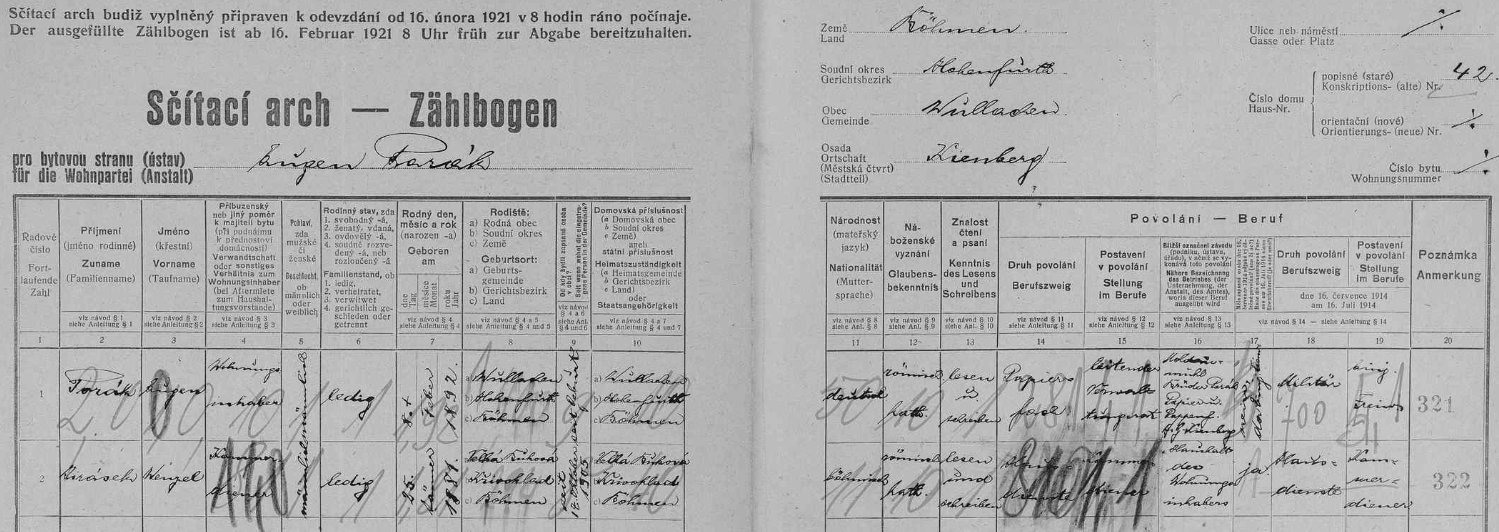 Sčítací arch budiž vyplněný připraven k odevzdání od 16. února 1921 v 8 hodin ráno počínaje.
Der ausgefüllte Zählbogen ist ab 16. Februar 1921 8 Uhr früh zur Abgabe bereitzuhalten.
Sčítací arch — Zählbogen
pro bytovou stranu (ústav)
für die Wohnpartei (Anstalt)
Eugen Porák
Země
Land
Böhmen.
Soudní okres
Gerichtsbezirk
Hohenfurth
Obec
Gemeinde
Wulladen
Osada
Ortschaft
(Městská čtvrt)
(Stadtteil)
Kienberg
Ulice neb náměstí
Gasse oder Platz
Číslo domu
Haus-Nr.
popisné (staré)
Konskriptions- (alte) Nr.
42.
orientační (nové)
Orientierungs- (neue) Nr.
Číslo bytu
Wohnungsnummer
Řadové
číslo
Fort-
laufende
Zahl
Příjmení
(jméno rodinné)
Zuname
(Familienname)
viz návod § 1
siehe Anleitung § 1
Jméno
(křestní)
Vorname
(Taufname)
viz návod § 2
siehe Anleitung § 2
Příbuzenský
neb jiný poměr
k majiteli bytu
(při podnájmu
k přednostovi
domácnosti)
Verwandtschaft
oder sonstiges
Verhältnis zum
Wohnungsinhaber
(bei Aftermiete
zum Haushal-
tungsvorstande)
viz návod § 3
siehe Anleitung § 3
Pohlaví,
zda
mužské
či
ženské
Geschlecht,
ob
männlich
oder
weiblich
Rodinný stav, zda
1. svobodný -á,
2. ženatý, vdaná,
3. ovdovělý -á,
4. soudně rozve-
dený -á, neb
rozloučený -á
Familienstand, ob
1. ledig,
2. verheiratet,
3. verwitwet
4. gerichtlich ge-
schieden oder
getrennt
Rodný den,
měsíc a rok
(narozen -a)
Geboren
am
dne
Tag
měsíce
Monat
roku
Jahr
viz návod § 4
siehe Anleitung § 4
Rodiště:
a) Rodná obec
b) Soudní okres
c) Země
Geburtsort:
a) Geburts-
gemeinde
b) Gerichtsbezirk
c) Land
viz návod § 4 a 5
siehe Anleitung § 4 und 5
Domovská příslušnost
(a Domovská obec
b Soudní okres
c Země)
aneb
státní příslušnost
Heimatszuständigkeit
(a Heimatsgemeinde
b Gerichtsbezirk
c Land)
oder
Staatsangehörigkeit
viz návod § 4 a 7
siehe Anleitung § 4 und 7
Národnost
(mateřský
jazyk)
Nationalität
(Mutter-
sprache)
viz návod § 8
siehe Anl. § 8
Ná-
boženské
vyznání
Glaubens-
bekenntnis
viz návod § 9
siehe Anl. § 9
Znalost
čtení
a psaní
Kenntnis
des Lesens
und
Schreibens
viz návod § 10
siehe Anl. § 10
Povolání — Beruf
Druh povolání
Berufszweig
viz návod § 11
siehe Anleitung § 11
Postavení
v povolání
Stellung
im Berufe
viz návod § 12
siehe Anleitung § 12
Bližší označení závodu
(podniku, ústavu,
úřadu), v němž se vy-
konává toto povolání
Nähere Bezeichnung
des Betriebes (der
Unternehmung, der
Anstalt, des Amtes),
worin dieser Beruf
ausgeübt wird
viz návod § 13
siehe Anleitung § 13
Druh povolání
Berufszweig
Postavení
v povolání
Stellung
im Berufe
dne 16. července 1914
am 16. Juli 1914
viz návod § 14 — siehe Anleitung § 14
Poznámka
Anmerkung
1 2 3 4 5 6 7 8 9 10 11 12 13 14 15 16 17 18 19 20
1
Porák
Eugen
Wohnungs
inhaber
männlich
ledig
8.
1892.
a) Wulladen
b) Hohenfurth
c) Böhmen
seit
Geburt
a) Wulladen
b) Hohenfurth
c) Böhmen
deutsch
römisch
kath.
lesen
u.
schreiben
Papier-
fach
leitender
Verwal-
tungsrat
Militär
321
2
Jirásch
Wenzel
Kammer
diener
männlich
ledig
25.
Jänner
1881.
a) Velká Buková
b) Křivoklad
c) Böhmen
seit
1905
a) Velká Buková
b) Křivoklad
c) Böhmen
böhmisch
römisch
kath.
lesen
und
schreiben
Haus-
dienste
Kammer
diener
Haushalt
des
Wohnungs
inhabers
ja
Haus-
dienste
Kam-
mer-
diener
322